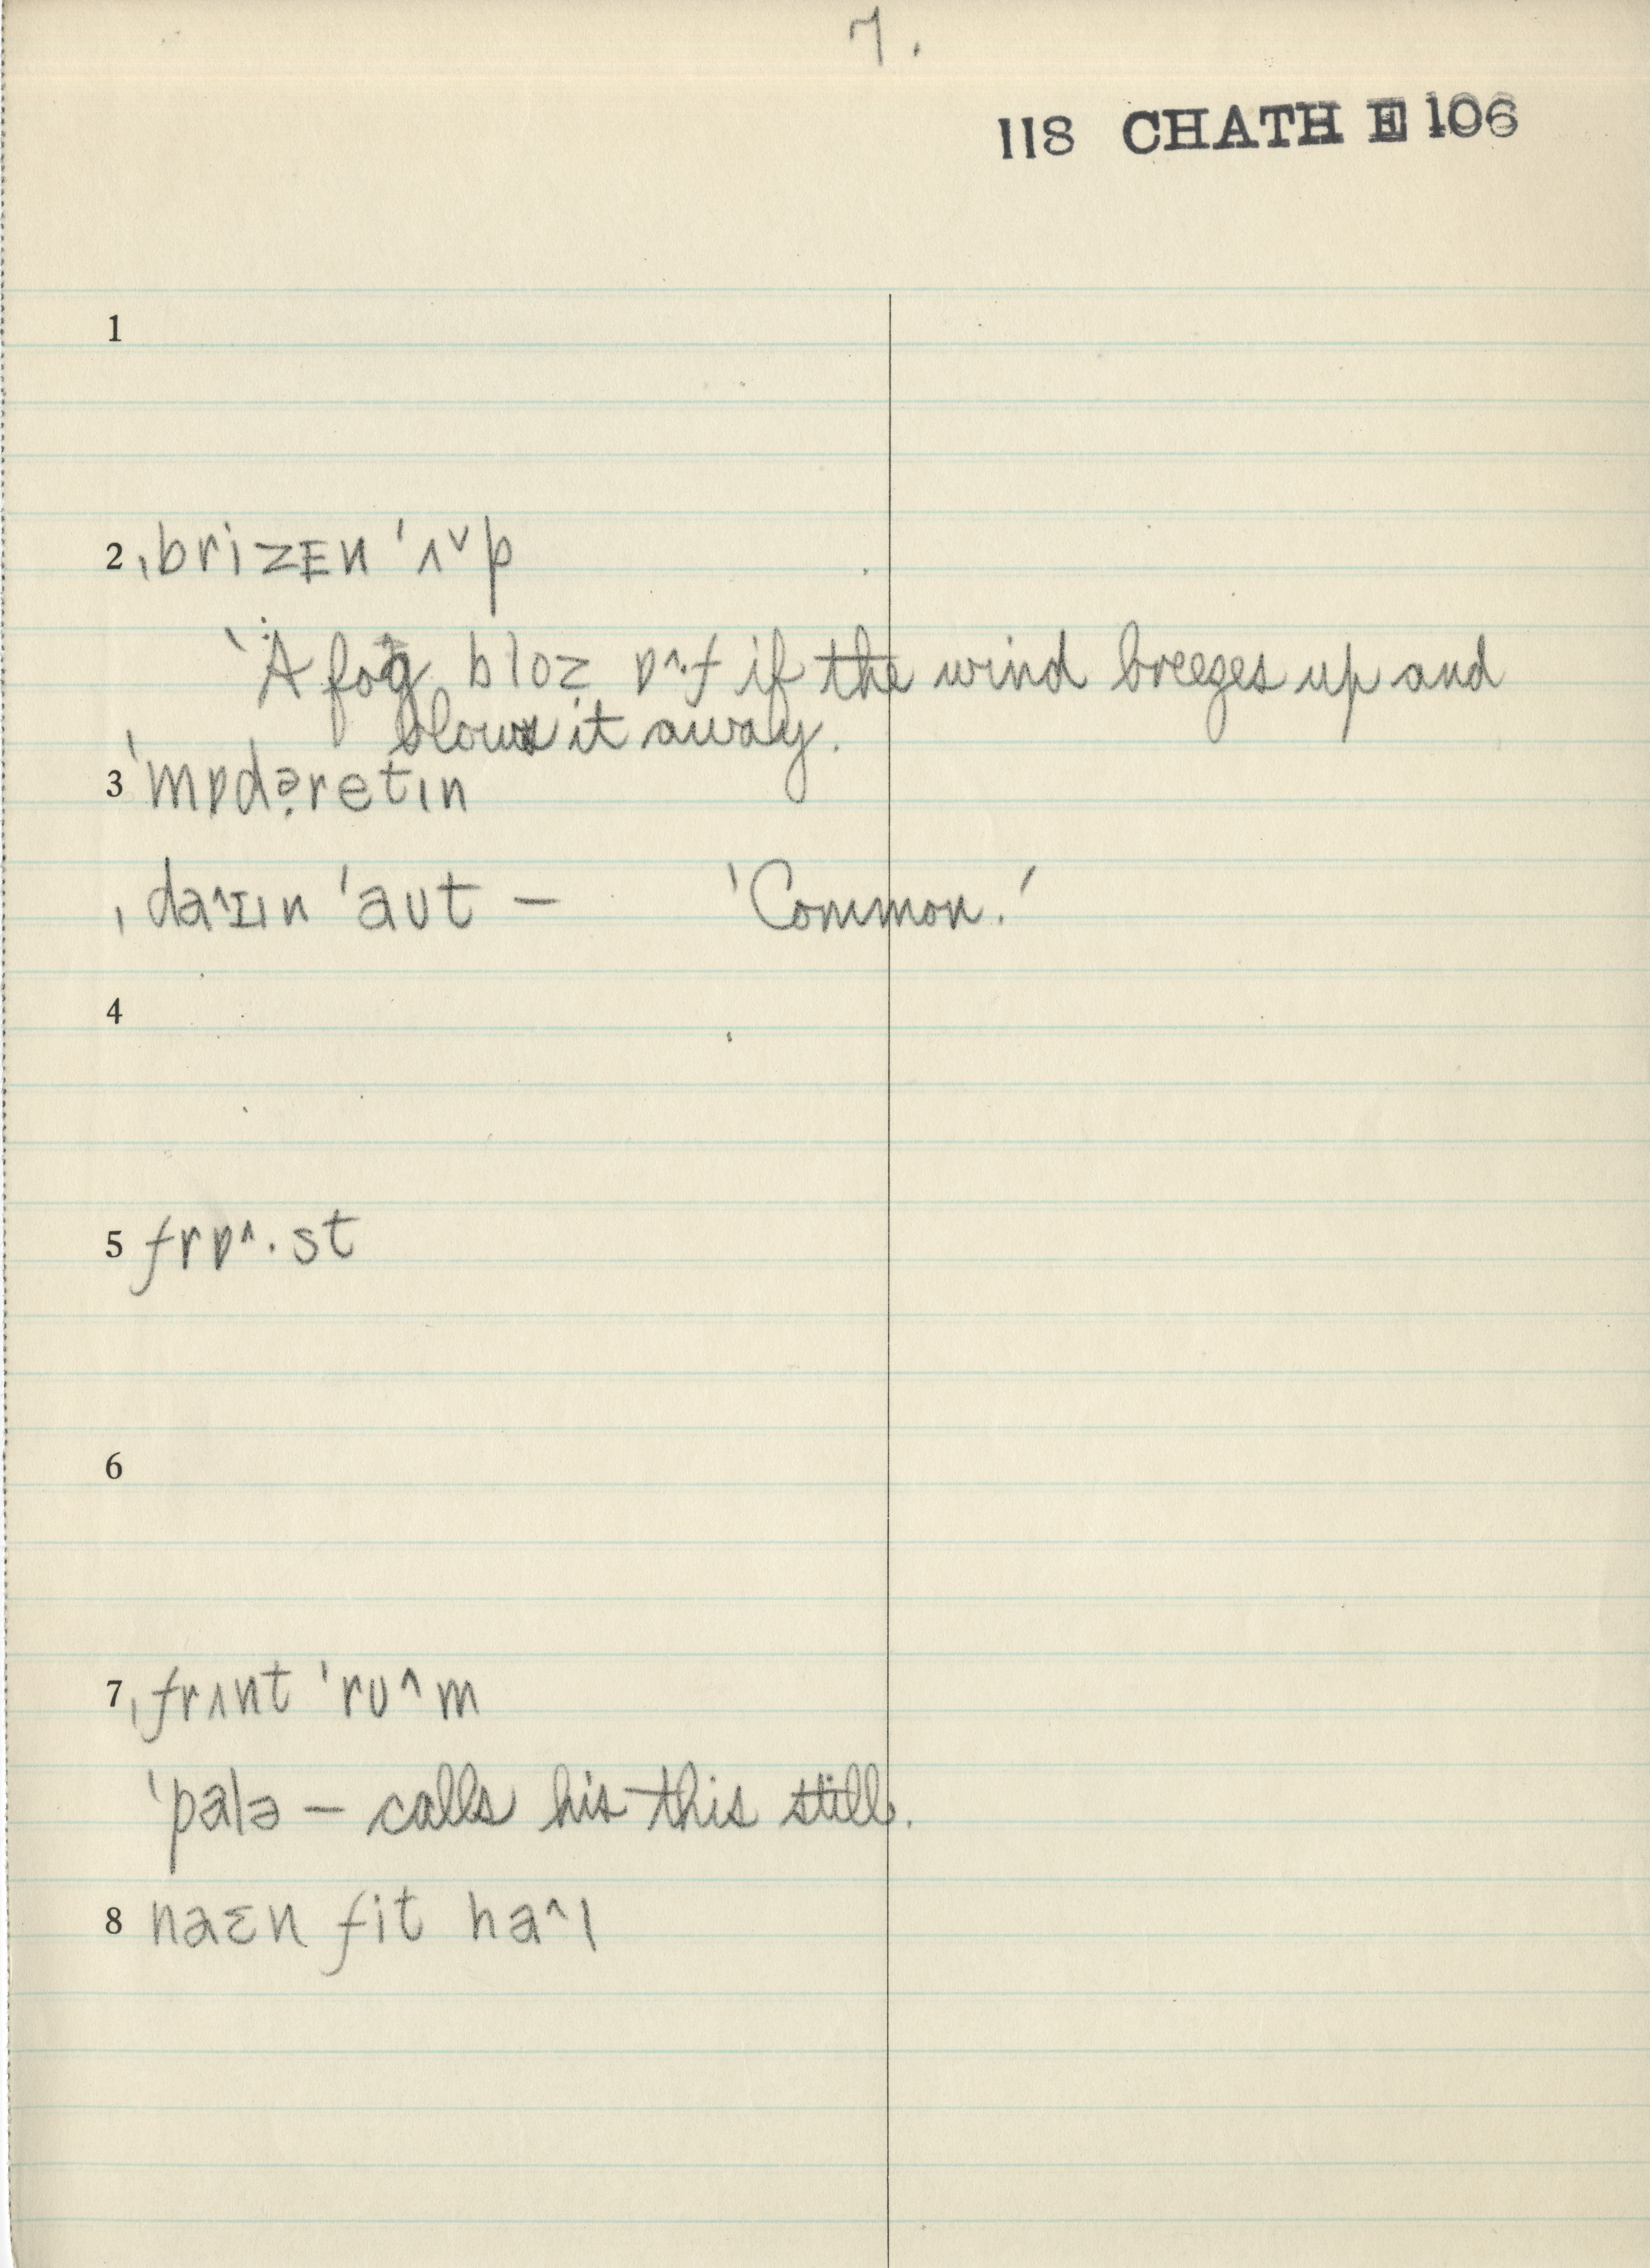 7.
118 CHATH E 106
1
2 ˌbrizᴇn 'ʌ˅p
'A fog bloz ɒ^·f if the wind breezes up and
blows it away.
3 'mɒdə̣retɪn
ˌda^ɪɪn 'aʊt — 'Common.'
4
5 frɒ^·st
6
7 ˌfrʌnt 'rʊ^m
'palə — calls his this still.
8 naɛn fit ha^l